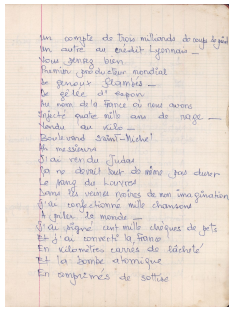 Un compte de trois milliards de coups de pied
Un autre au crédit Lyonnais _
Vous tenez bien
Premier producteur mondial
De genoux flambés _
De gelée d'espoir
Au nom de la France où nous avons
Injecté quatre mille ans de rage _
Vendu au kilo _
Boulevard Saint-Michel
Ah messieurs
J'ai rendu Judas
Ça ne devait tout de même pas durer
Le sang du Louvre
Dans les veines noires de mon imagination
J'ai confectionné mille chansons
A piler le monde _
J'ai signé cent mille chèques de pets
Et j'ai converti la france
En kilomètres carrés de lâcheté
Et la bombe atomique
En comprimés de sottise